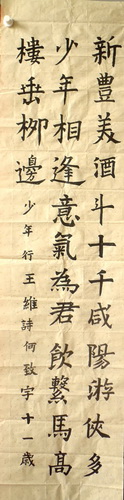 新豐美酒斗十千咸陽游俠多
少年相逢意氣為君飲繫馬高
樓垂柳邊
少年行王維詩何致宇十一歲